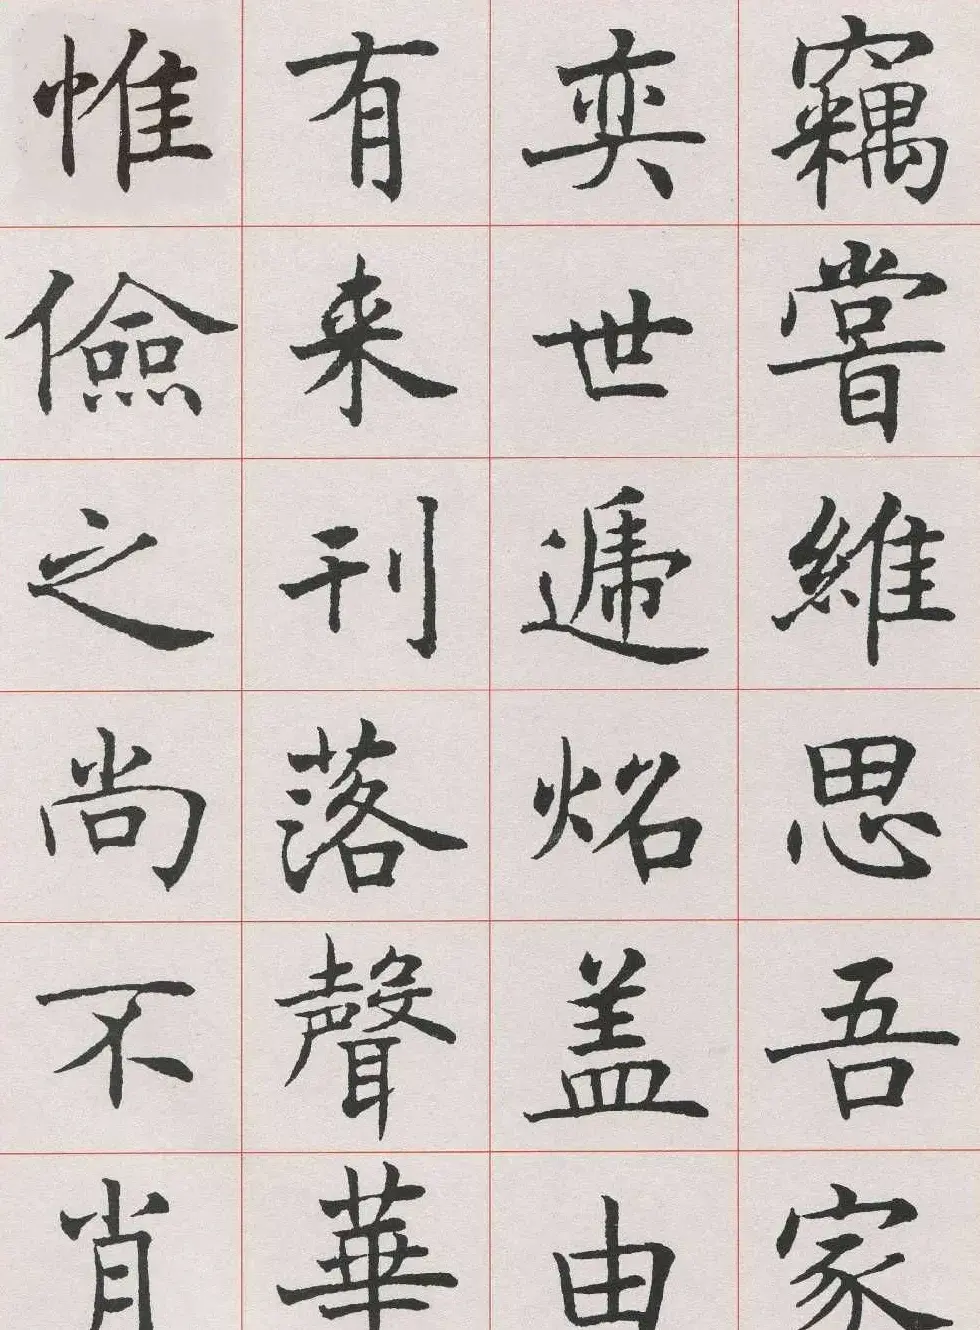 竊嘗維思吾家
奕世遞炤盖由
有来刊落聲華
惟儉之尚不肖